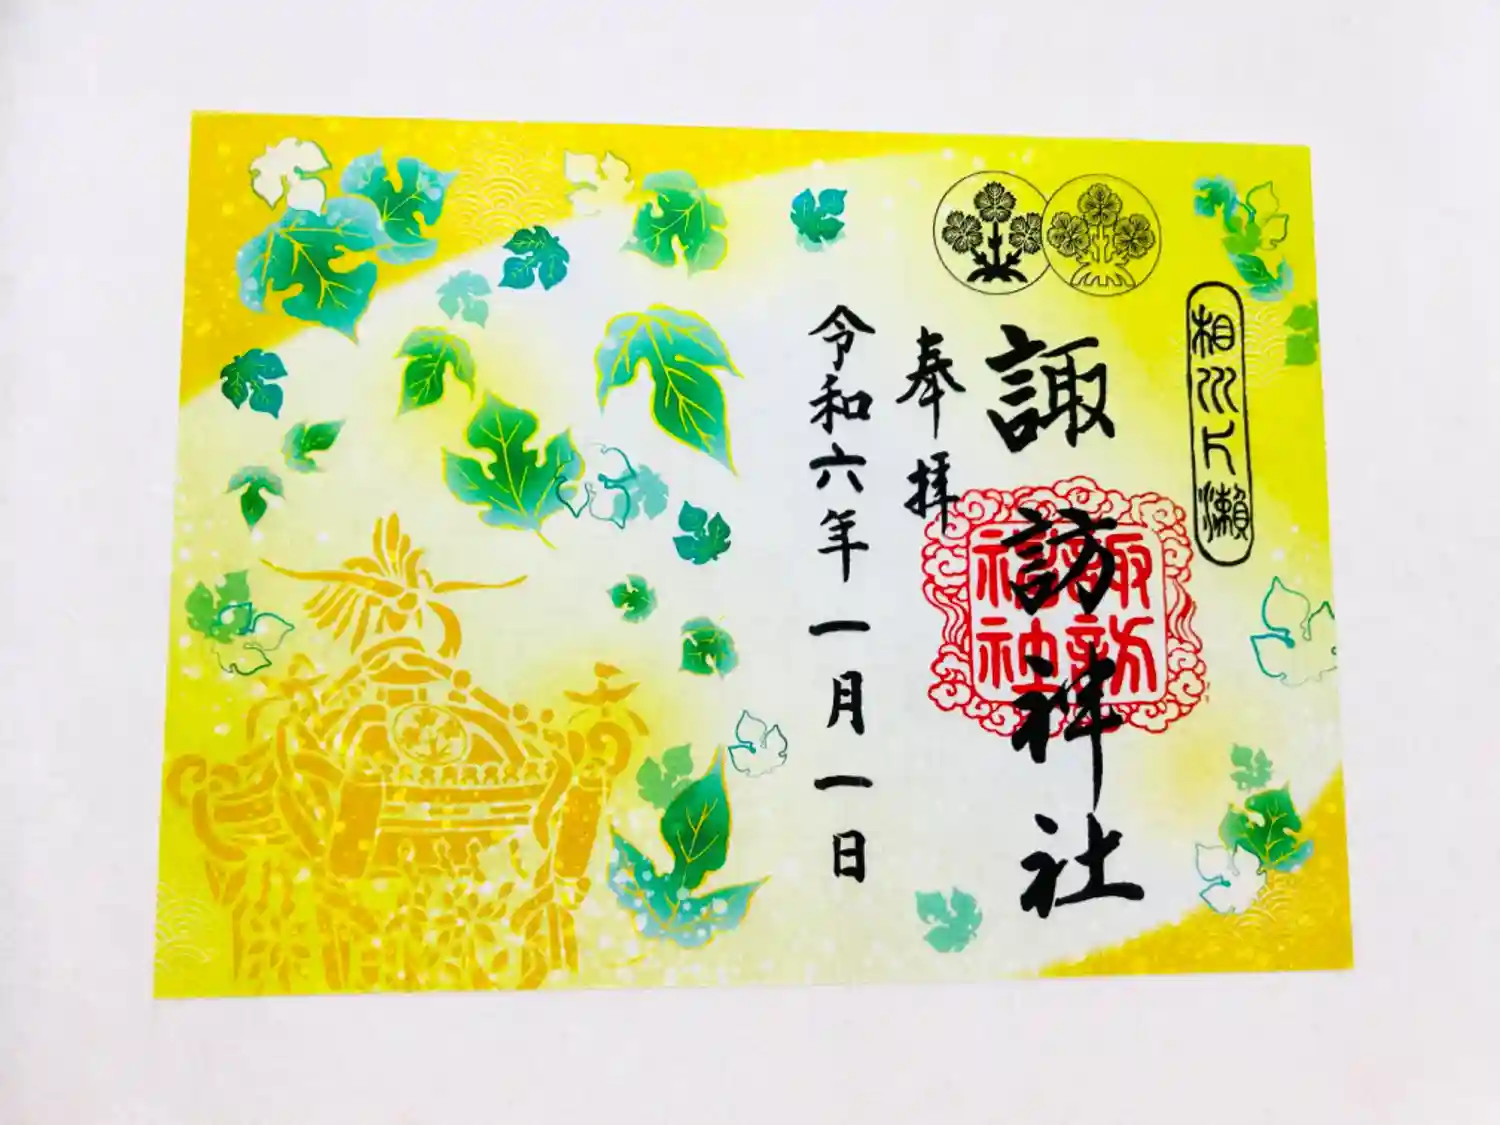 相州片瀬
諏訪神社
諏訪
神社
奉拝
令和六年一月一日